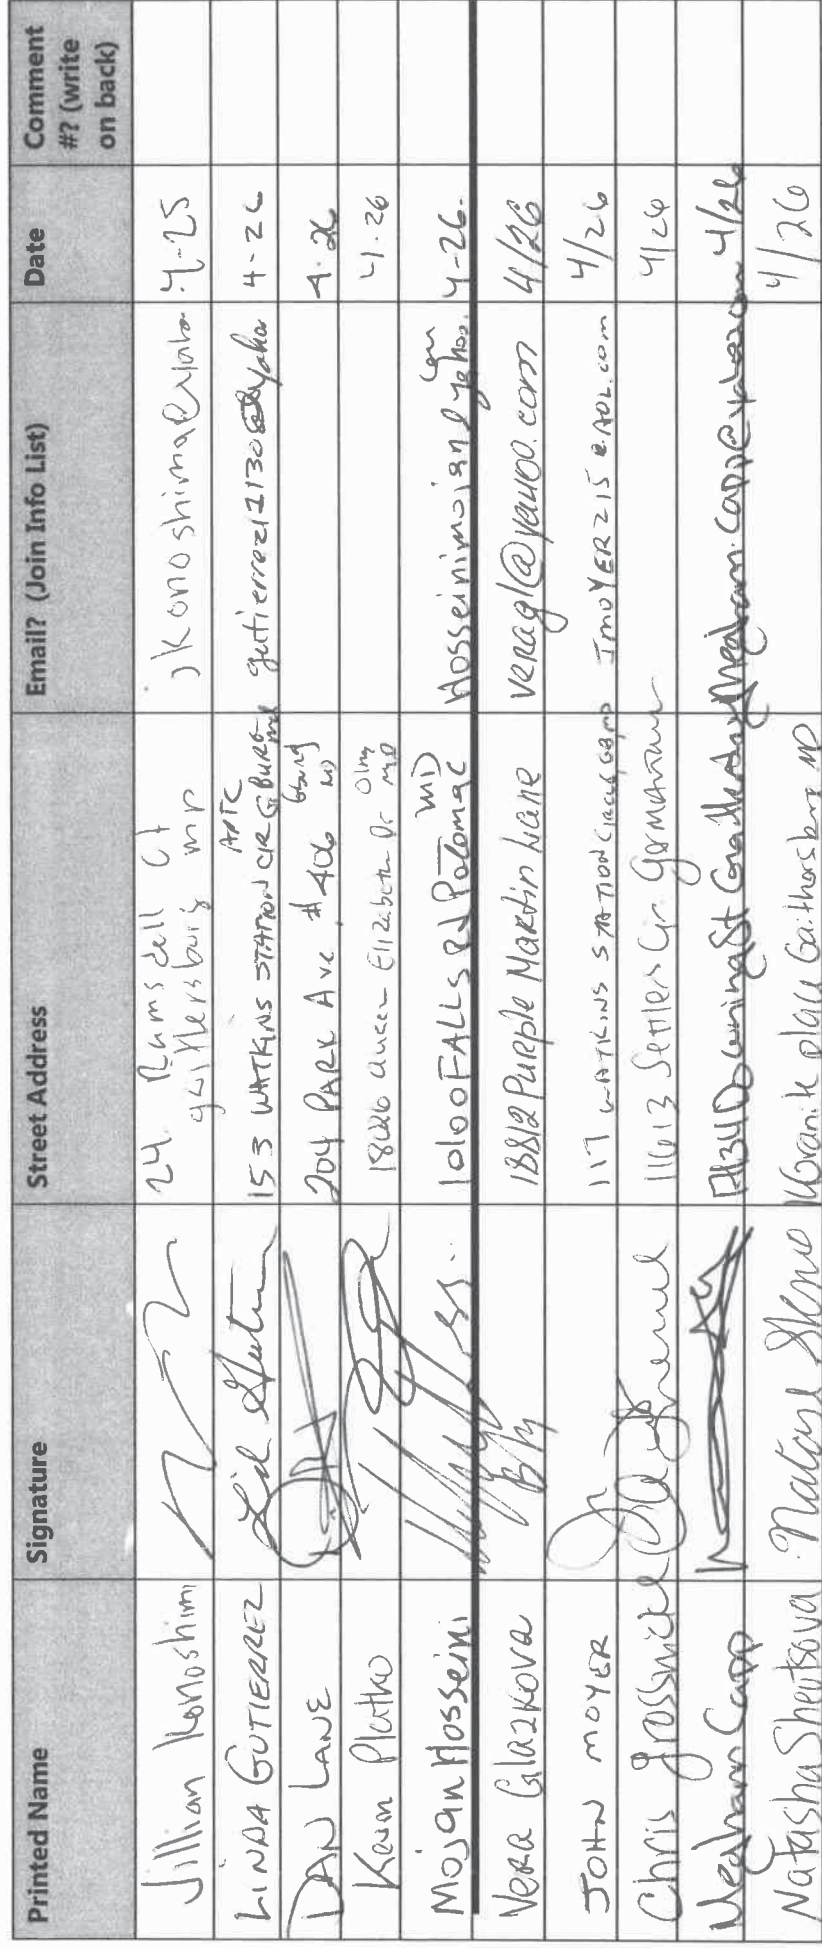 Printed Name Signature Street Address Email? (Join Info List) Date Comment #? (write on back)
Jillian Konoshim 24 Ramsdell Ct gaithersburg MD jkonoshima@yaho 4-25
LINDA GUTIERREZ 153 WATKINS STATION CIR GBURG md gutierrez12130 yaho 4-26
DAN LANE 204 PARK Ave #406 MD 4.26
Kevin Platko Elizabeth Dr Olny MD 4.26
Mojan Hosseini 10100 FALLS Rd Potomac MD Hosseinimojan@yahoo.com 4-26.
Vera Glazkova 18812 Purple Martin Lane veragl@yahoo.com 4/26
JOHN MOYER 117 WATKINS STATION Circle JMOYER215@AOL.com 4/26
Chris 11613 Settlers Cr. Germantown 4/26
Meghann Capp Downing St Meghann.Capp@yahoo.com 4/26
Natasha Shevtsova Granite place Gaithersburg MD 4/26